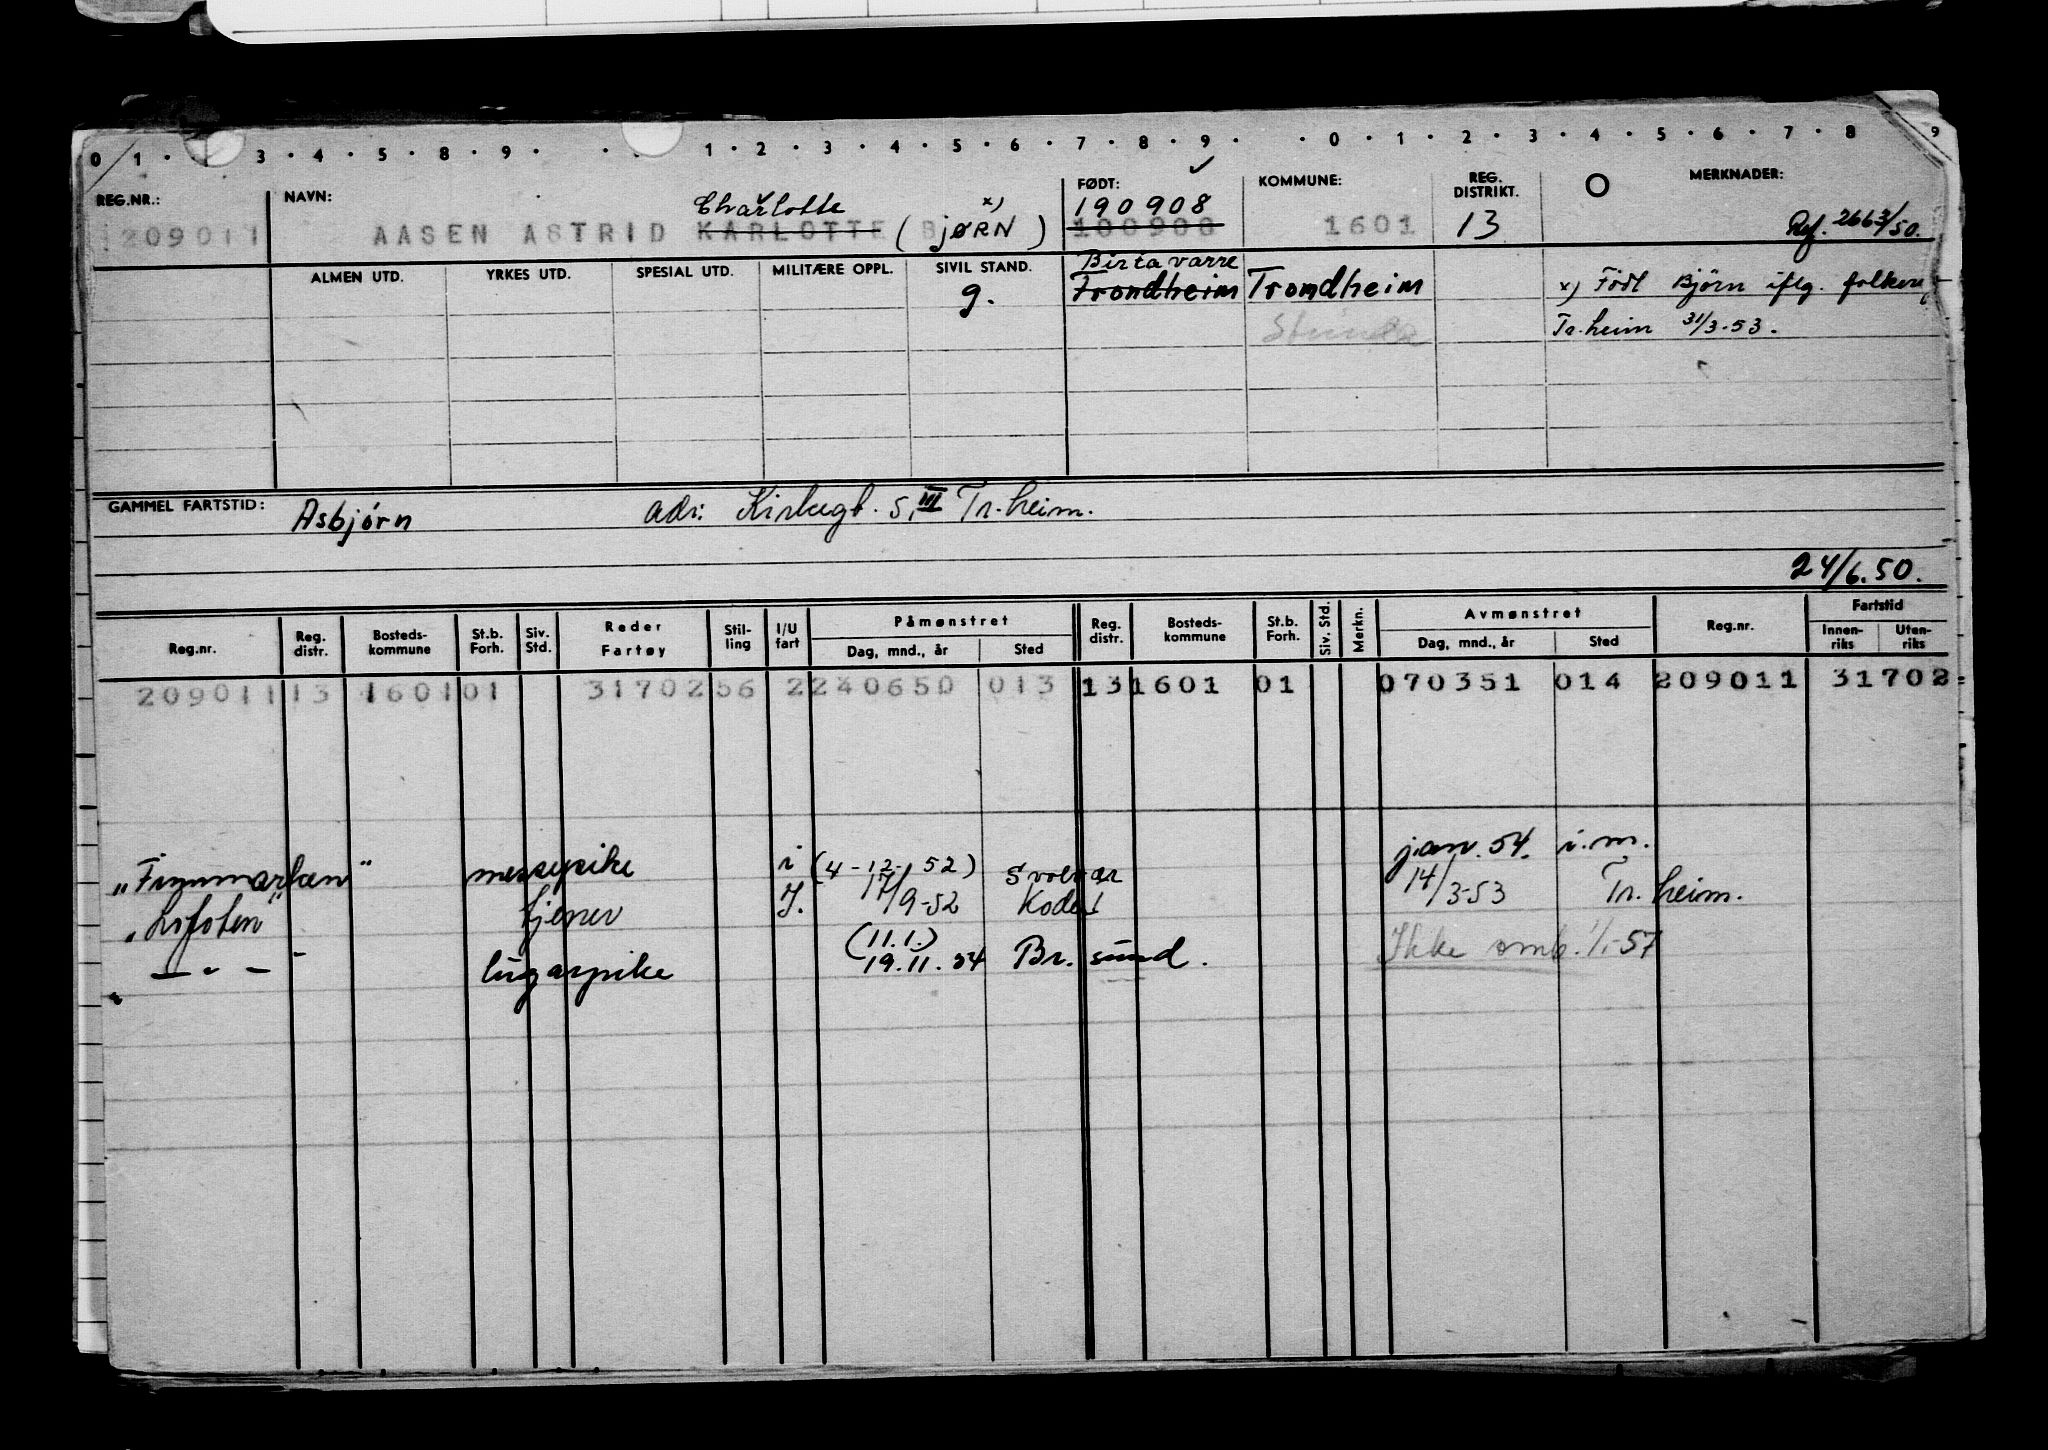 0 1 · 3 · 4 · 5 · 8 · 9 · · 1 · 2 · 3 · 4 · 5 · 6 · 7 · 8 · 9 · · 0 · 1 · 2 · 3 · 4 · 5 · 6 · 7 · 8 9
REG.NR.: NAVN: FØDT: KOMMUNE: REG. DISTRIKT. MERKNADER:
Charlotte x) 190908
209011 AASEN ASTRID KARLOTTE (BJØRN) 100908 1601 13 Ref. 2663/50.
ALMEN UTD. YRKES UTD. SPESIAL UTD. MILITÆRE OPPL. SIVIL STAND. Birtavarre
g. Trondheim Trondheim x) Født Bjørn iflg. folkereg
Strinda Tr.heim 31/3-53.
GAMMEL FARTSTID: Asbjørn adr: Kirkegt. 5, III Tr.heim.
24/6.50.
Reg.nr. Reg. distr. Bosteds- kommune St.b. Forh. Siv. Std. Reder Fartøy Stil- ling I/U fart Påmønstret Dag, mnd., år Sted Reg. distr. Bosteds- kommune St.b. Forh. Siv. Std. Merkn. Avmønstret Dag, mnd., år Sted Reg.nr. Fartstid Innen- riks Uten- riks
209011 13 1601 01 31702 56 2 240650 013 13 1601 01 070351 014 209011 31702
"Finnmarken" messepike i (4-12-52) Svolvær jan. 54. i.m.
"Lofoten" tjener I. 17/9-52 Bodø 14/3-53 Tr.heim.
— " — lugarpike (11.1.) 19.11.54 Br.sund. Ikke omb. 1/1-57